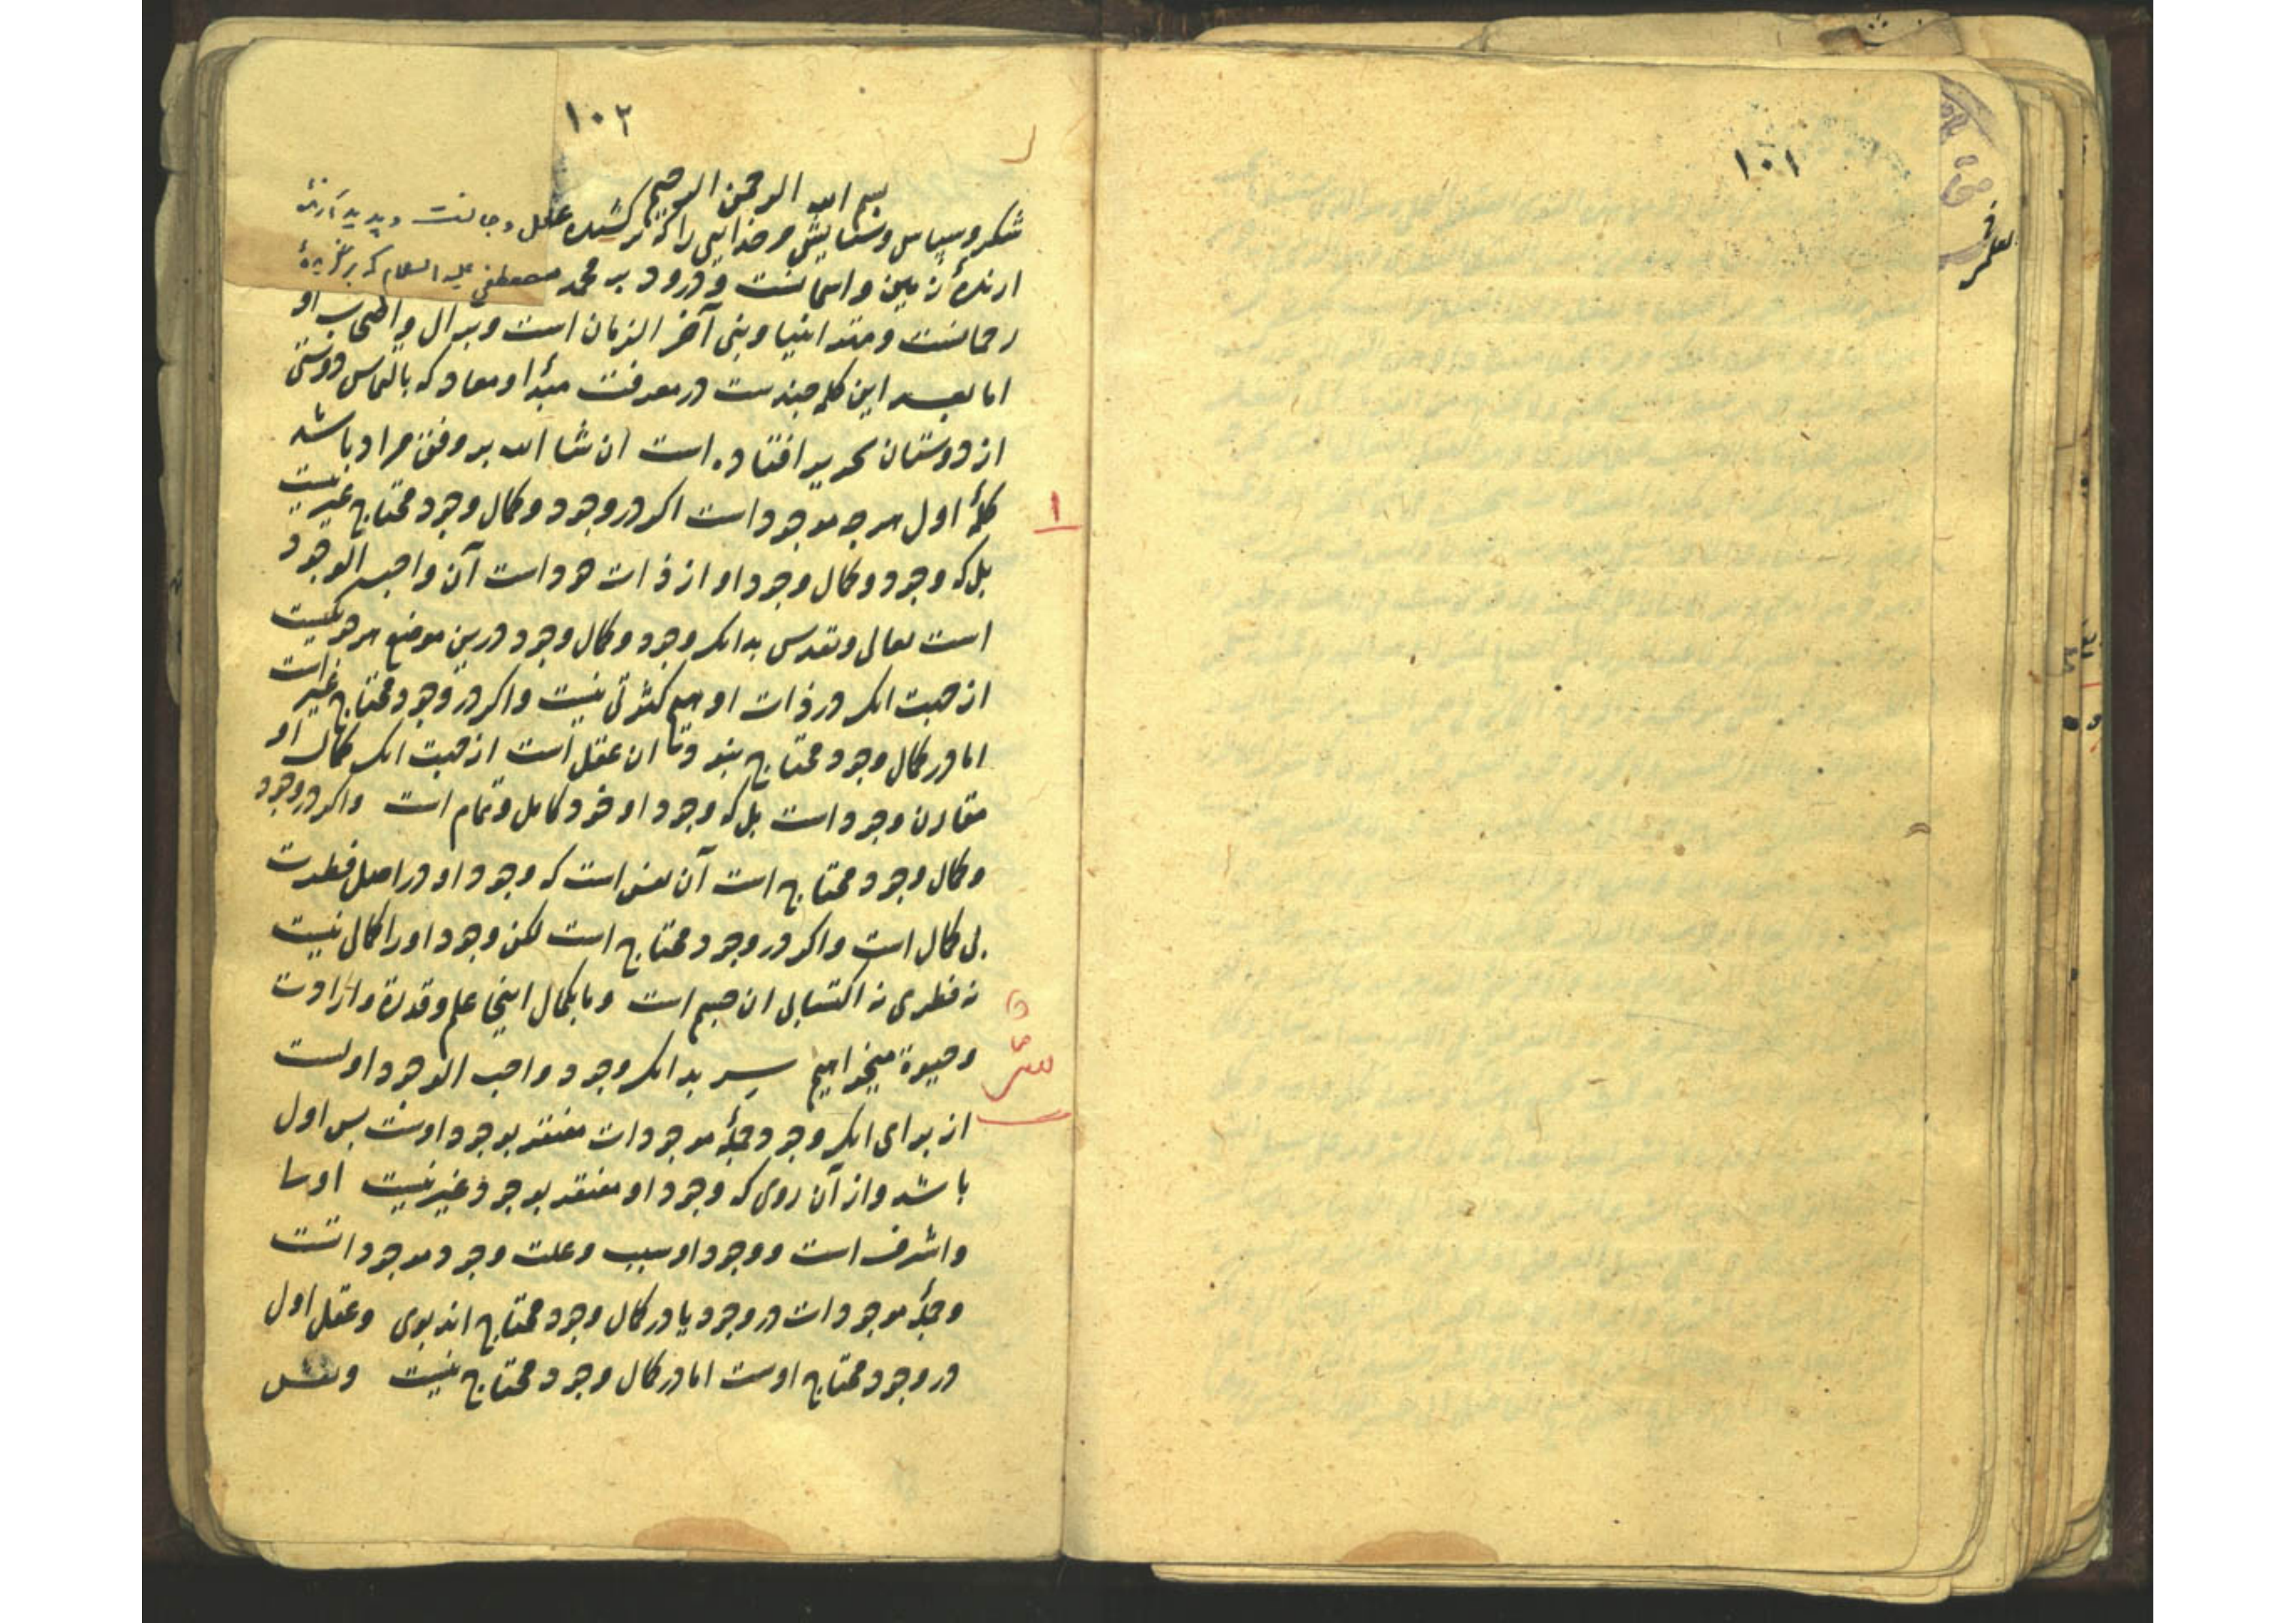 ١٠١
١٠٢
بسم الله الرحمن الرحیم
شکر و سپاس و ستایش مر خدایی را که برکشنده عقل و جانست و پدید آرنده
ارنده زمین و اسمانست و درود بر محمد مصطفی علیه السلام که برگزیده
رحمانست و مقتد انبیا و نبی آخر الزمان است و بر ال و اصحاب او
اما بعد این کلمه چندست در معرفت مبدأ و معاد که بالتماس دوستی
از دوستان تحریر افتاده است ان شا الله بر وفق مراد باشد
١
کلمهٔ اول هرچه موجود است اکر در وجود و کمال وجود محتاج غیر نیست
بل که وجود و کمال وجود او از ذات خود است آن واجب الوجود
است تعالی و تقدس بدانک وجود و کمال وجود درین موضع هر دو یکیست
از جهت انک در ذات او هیچ کثرتی نیست و اکر در وجود محتاج غیر است
اما در کمال وجود محتاج بنود ان عقل است از جهت انک کمال او
مقارن وجود است بل که وجود او خود کامل و تمام است و اکر در وجود
و کمال وجود محتاج است آن نفس است که وجود او در اصل فطرت
بی کمال است و اکر در وجود محتاج است لکن وجود او را کمالی نیست
نه فطری نه اکتسابی ان جسم است و ما بکمال اینجا علم و قدرة و ارادت
و حیوة میخواهیم بدانک وجود واجب الوجود اولست
از برای انک وجود جملهٔ موجودات مفتقر بوجود اوست پس اول
باشد و از آن روی که وجود او مفتقر بوجود غیر نیست
و اشرف است و وجود او سبب و علت وجود موجوداتست
و جملهٔ موجودات در وجود یا در کمال وجود محتاج اند بوی و عقل اول
در وجود محتاج اوست اما در کمال وجود محتاج نیست و نفس